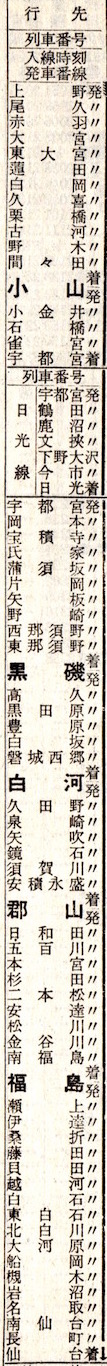 行先
列車番号
入線時刻
発車番線
上野発
尾久〃
赤羽〃
大宮〃
東大宮〃
蓮田〃
白岡〃
久喜〃
栗橋〃
古河〃
野木〃
間々田〃
小山着発
小金井〃
石橋〃
雀宮〃
宇都宮着
列車番号
日光線
宇都宮発
鶴田〃
鹿沼〃
文挟〃
下野大沢〃
今市〃
日光着
宇都宮発
岡本〃
宝積寺〃
氏家〃
蒲須坂〃
片岡〃
矢板〃
野崎〃
西那須野〃
東那須野〃
黒磯着発
高久〃
黒田原〃
豊原〃
白坂〃
磐城西郷〃
白河着発
久田野〃
泉崎〃
矢吹〃
鏡石〃
須賀川〃
安積永盛〃
郡山着発
日和田〃
五百川〃
本宮〃
杉田〃
二本松〃
安達〃
松川〃
金谷川〃
南福島〃
福島着発
瀬上〃
伊達〃
桑折〃
藤田〃
貝田〃
越河〃
白石〃
東白石〃
北白川〃
大河原〃
船岡〃
槻木〃
岩沼〃
名取〃
南仙台〃
長町〃
仙台着